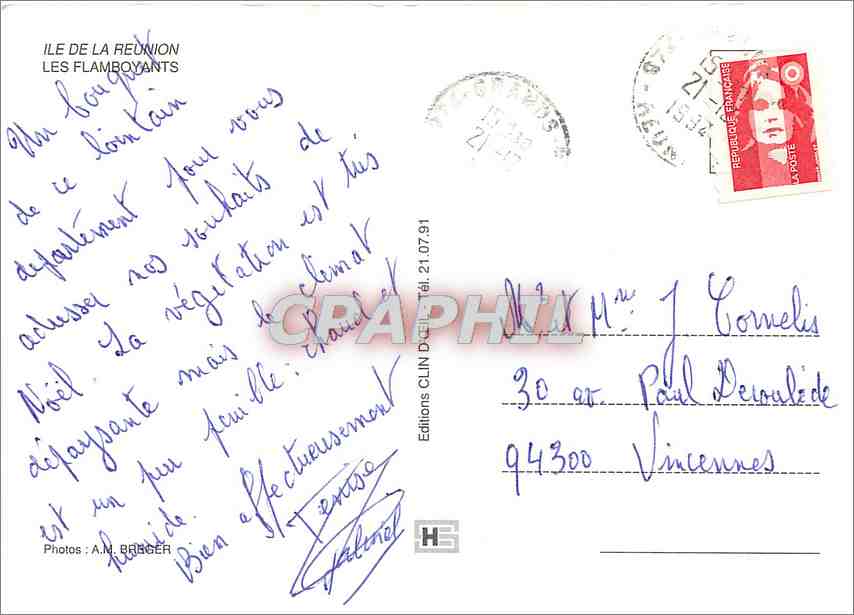 ILE DE LA REUNION
LES FLAMBOYANTS
Un bouquet
de ce lointain
département pour vous
adresser nos souhaits de
Noël. La végétation est très
dépaysante mais le climat
est un peu pénible : chaud et
humide.
Bien affectueusement
Denise
Photos : A.M. BREGER
Editions CLIN D'ŒIL - Tél. 21.07.91
CPAPHIL
REPUBLIQUE FRANÇAISE
LA POSTE
21-12
1994
21-12
Mr et Mme J Cornelis
30 av. Paul Deroulède
94300 Vincennes
HS